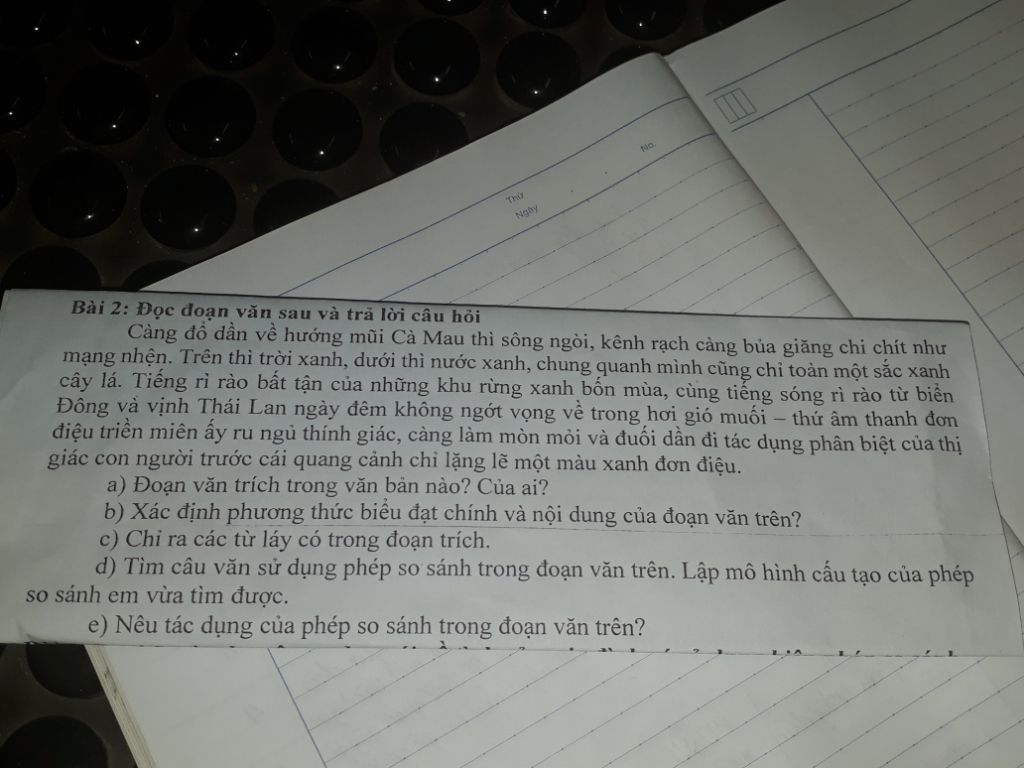 No.
Thứ
Ngày
Bài 2: Đọc đoạn văn sau và trả lời câu hỏi
Càng đổ dần về hướng mũi Cà Mau thì sông ngòi, kênh rạch càng bủa giăng chi chít như
mạng nhện. Trên thì trời xanh, dưới thì nước xanh, chung quanh mình cũng chỉ toàn một sắc xanh
cây lá. Tiếng rì rào bất tận của những khu rừng xanh bốn mùa, cùng tiếng sóng rì rào từ biển
Đông và vịnh Thái Lan ngày đêm không ngớt vọng về trong hơi gió muối – thứ âm thanh đơn
điệu triền miên ấy ru ngủ thính giác, càng làm mòn mỏi và đuối dần đi tác dụng phân biệt của thị
giác con người trước cái quang cảnh chỉ lặng lẽ một màu xanh đơn điệu.
a) Đoạn văn trích trong văn bản nào? Của ai?
b) Xác định phương thức biểu đạt chính và nội dung của đoạn văn trên?
c) Chỉ ra các từ láy có trong đoạn trích.
d) Tìm câu văn sử dụng phép so sánh trong đoạn văn trên. Lập mô hình cấu tạo của phép
so sánh em vừa tìm được.
e) Nêu tác dụng của phép so sánh trong đoạn văn trên?